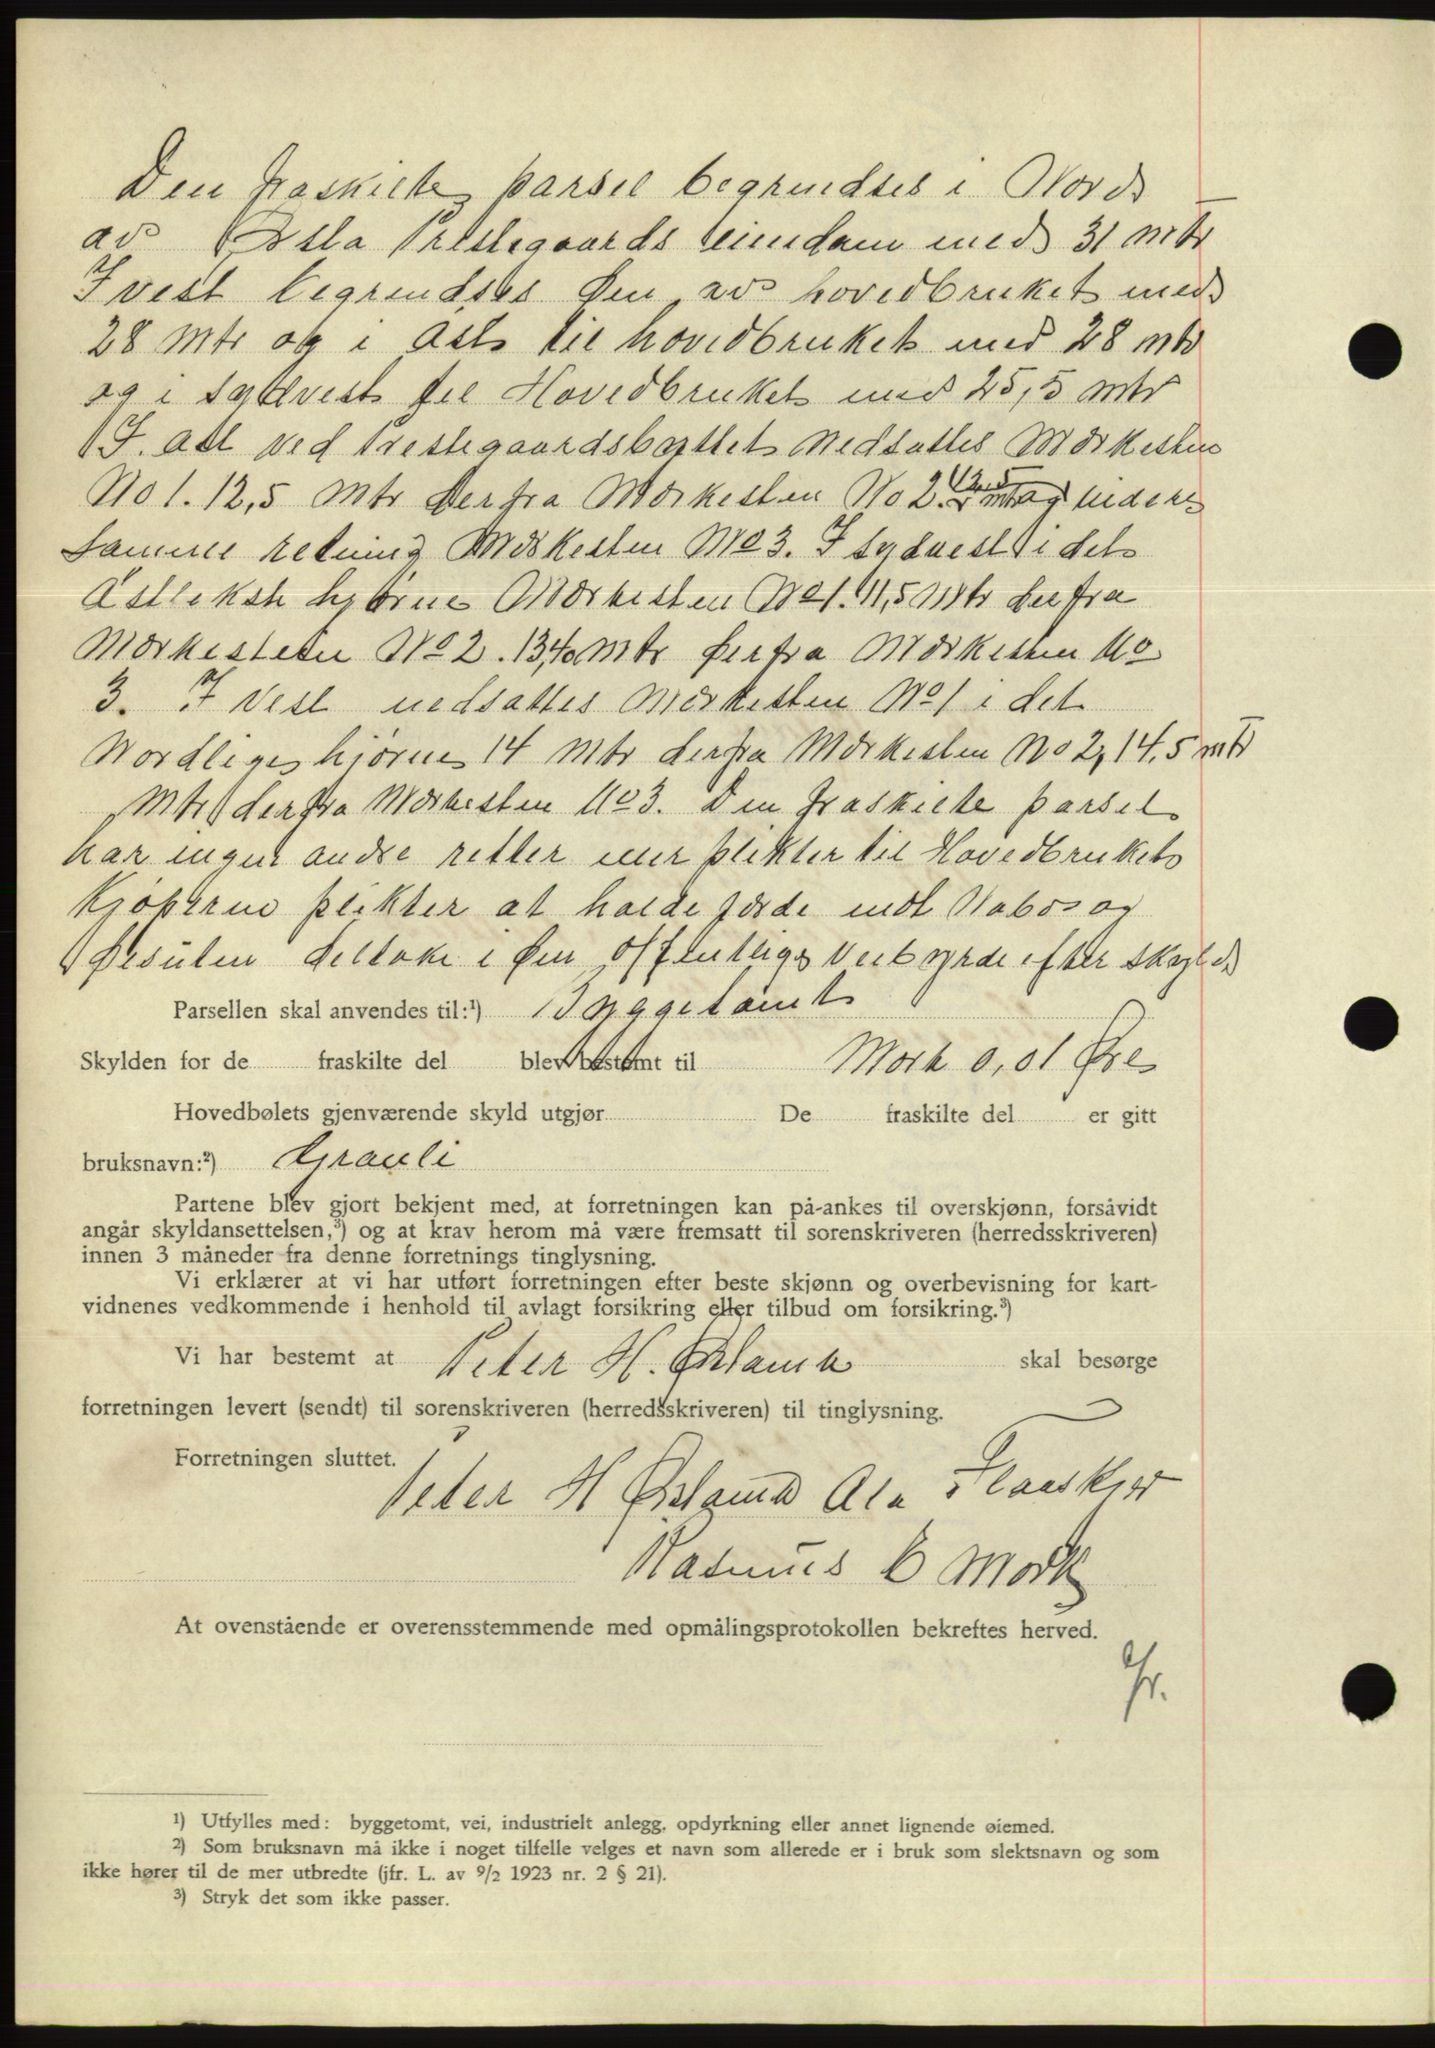 Den fraskilte parsel begrendses i Nord
av Ørsta Prestegaards eiendom med 31 mtr
I vest begrendses den av hovedbruket med
28 mtr og i Øst til hovedbruket med 28 mtr
og i sydvest til Hovedbruket med 25,5 mtr
I. Øst ved Prestegaardsbyttet Nedsattes Merkesten
No 1. 12,5 mtr derfra Merkesten No 2. 12,5 mtr og videre
samme retning Merkesten No 3. I sydvest i det
Østlekste hjørne Merkesten No 1. 11,5 Mtr derfra
Merkesten No 2. 13,40 mtr derfra Merkesten No
3. I Vest nedsattes Merkesten No 1 i det
Nordlige hjørne 14 Mtr derfra Merkesten No 2, 14,5 mtr
Mtr derfra Merkesten No 3. Den fraskilte parsel
har ingen andre retter eller plikter til Hovedbruket
Kjøperne plikter at holde gjerde mot Nabo og
desuten deltake i den offentlige Veibyrde efter skyld
Parsellen skal anvendes til:¹) Byggetomt
Skylden for de fraskilte del blev bestemt til Mark 0,01 Øre
Hovedbølets gjenværende skyld utgjør De fraskilte del er gitt
bruksnavn:²) Granli
Partene blev gjort bekjent med, at forretningen kan på-ankes til overskjønn, forsåvidt
angår skyldansettelsen,³) og at krav herom må være fremsatt til sorenskriveren (herredsskriveren)
innen 3 måneder fra denne forretnings tinglysning.
Vi erklærer at vi har utført forretningen efter beste skjønn og overbevisning for kart-
vidnenes vedkommende i henhold til avlagt forsikring eller tilbud om forsikring.³)
Vi har bestemt at Peter H. Ørstavik skal besørge
forretningen levert (sendt) til sorenskriveren (herredsskriveren) til tinglysning.
Forretningen sluttet.
Peter H Ørstavik Ola Flaaskjer
Rasmus E Mork
At ovenstående er overensstemmende med opmålingsprotokollen bekreftes herved.
¹) Utfylles med: byggetomt, vei, industrielt anlegg, opdyrkning eller annet lignende øiemed.
²) Som bruksnavn må ikke i noget tilfelle velges et navn som allerede er i bruk som slektsnavn og som
ikke hører til de mer utbredte (jfr. L. av 9/2 1923 nr. 2 § 21).
³) Stryk det som ikke passer.